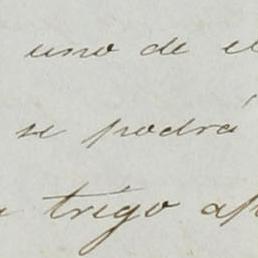 uno de el
se podrá
trigo